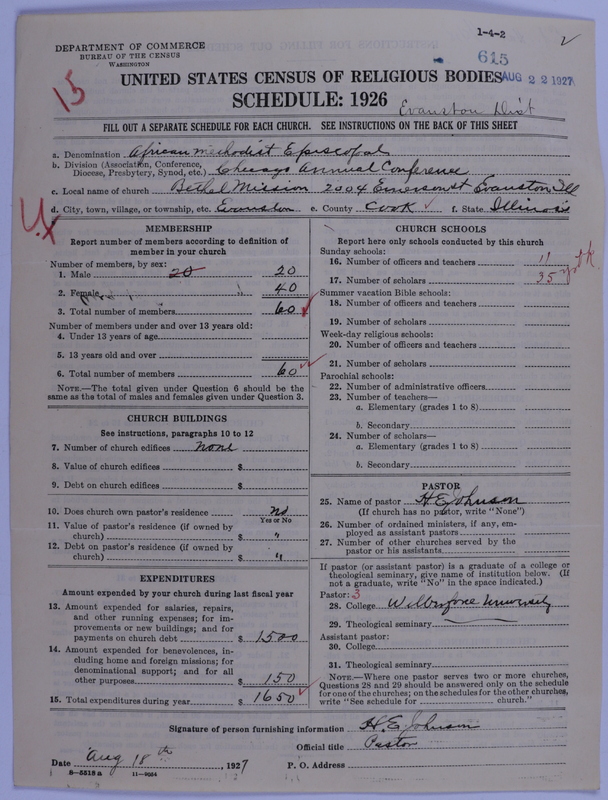 1-4-2
DEPARTMENT OF COMMERCE
BUREAU OF THE CENSUS
WASHINGTON
615
AUG 22 1927
15
UNITED STATES CENSUS OF RELIGIOUS BODIES
SCHEDULE: 1926
Evanston Dist
FILL OUT A SEPARATE SCHEDULE FOR EACH CHURCH. SEE INSTRUCTIONS ON THE BACK OF THIS SHEET
a. Denomination African Methodist Episcopal
b. Division (Association, Conference, Diocese, Presbytery, Synod, etc.) Chicago Annual Conference
c. Local name of church Bethel Mission 2004 Emerson st Evanston Ill
d. City, town, village, or township, etc. Evanston e. County Cook f. State Illinois
MEMBERSHIP
Report number of members according to definition of
member in your church
Number of members, by sex:
1. Male 20 20
2. Female 40
3. Total number of members 60
Number of members under and over 13 years old:
4. Under 13 years of age
5. 13 years old and over
6. Total number of members 60
NOTE.—The total given under Question 6 should be the
same as the total of males and females given under Question 3.
CHURCH BUILDINGS
See instructions, paragraphs 10 to 12
7. Number of church edifices none
8. Value of church edifices $
9. Debt on church edifices $
10. Does church own pastor's residence no
Yes or No
11. Value of pastor's residence (if owned by
church) $ "
12. Debt on pastor's residence (if owned by
church) $ "
EXPENDITURES
Amount expended by your church during last fiscal year
13. Amount expended for salaries, repairs,
and other running expenses; for im-
provements or new buildings; and for
payments on church debt $ 1500
14. Amount expended for benevolences, in-
cluding home and foreign missions; for
denominational support; and for all
other purposes $ 150
15. Total expenditures during year $ 1650
CHURCH SCHOOLS
Report here only schools conducted by this church
Sunday schools:
16. Number of officers and teachers 11
17. Number of scholars 35
Summer vacation Bible schools:
18. Number of officers and teachers
19. Number of scholars
Week-day religious schools:
20. Number of officers and teachers
21. Number of scholars
Parochial schools:
22. Number of administrative officers
23. Number of teachers—
a. Elementary (grades 1 to 8)
b. Secondary
24. Number of scholars—
a. Elementary (grades 1 to 8)
b. Secondary
PASTOR
25. Name of pastor H E Johnson
(If church has no pastor, write "None")
26. Number of ordained ministers, if any, em-
ployed as assistant pastors
27. Number of other churches served by the
pastor or his assistants
If pastor (or assistant pastor) is a graduate of a college or
theological seminary, give name of institution below. (If
not a graduate, write "No" in the space indicated.)
Pastor: 3
28. College Wilberforce University
29. Theological seminary
Assistant pastor:
30. College
31. Theological seminary
NOTE.—Where one pastor serves two or more churches,
Questions 28 and 29 should be answered only on the schedule
for one of the churches; on the schedules for the other churches,
write "See schedule for church."
Signature of person furnishing information H. E. Johnson
Official title Pastor
Date Aug 18th, 1927 P. O. Address
8-5518 a 11-9034